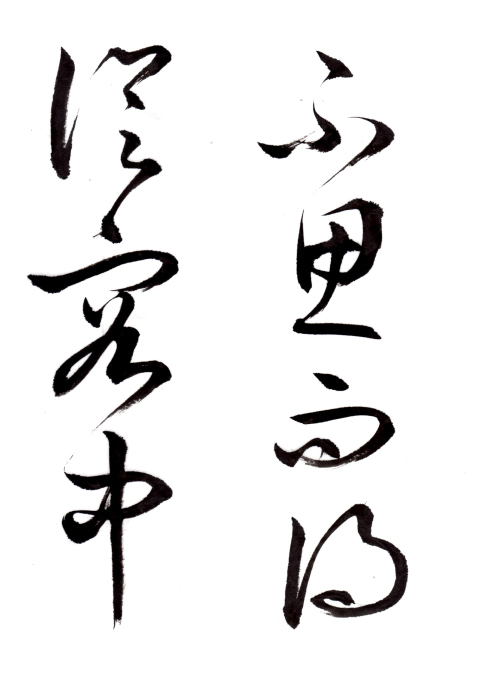 不思而得
從容中